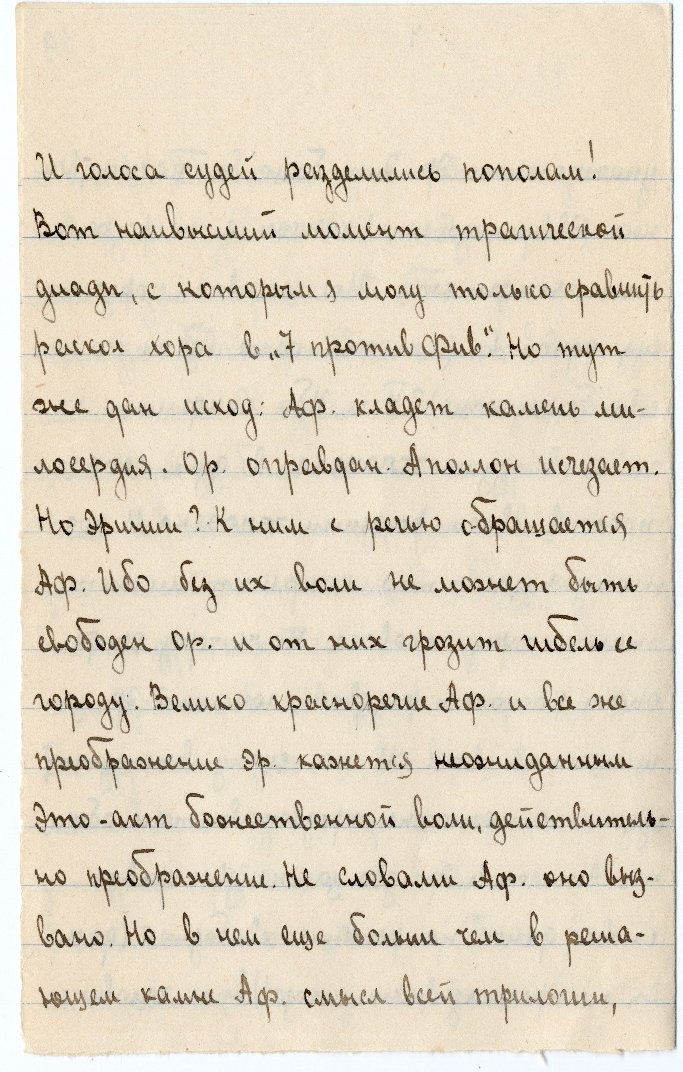 И голоса судей разделились пополам!
Вот наивысший момент трагической
диады, с которым я могу только сравнить
раскол хора в „7 против Фив“. Но тут
же дан исход: Аф. кладет камень ми-
лосердия. Ор. оправдан. Аполлон исчезает.
Но Эринии? К ним с речью обращается
Аф. Ибо без их воли не может быть
свободен Ор. и от них грозит гибель ее
городу. Велико красноречие Аф. и все же
преображение Эр. кажется неожиданным
Это - акт божественной воли, действитель-
но преображение. Не словами Аф. оно выз-
вано. Но в нем еще больше чем в реша-
ющем камне Аф. смысл всей трилогии,